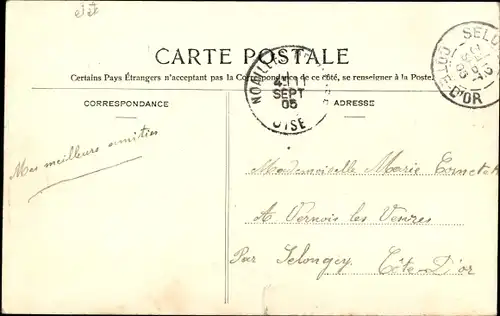 CARTE POSTALE
Certains Pays Étrangers n'acceptant pas la Correspondance de ce côté, se renseigner à la Poste.
CORRESPONDANCE
ADRESSE
NOAILLES
4 11
SEPT
05
OISE
CÔTE-D'OR
Mes meilleurs amitiés
Mademoiselle Marie
A Vernois les Vesvres
Par Selongey Côte-D'or